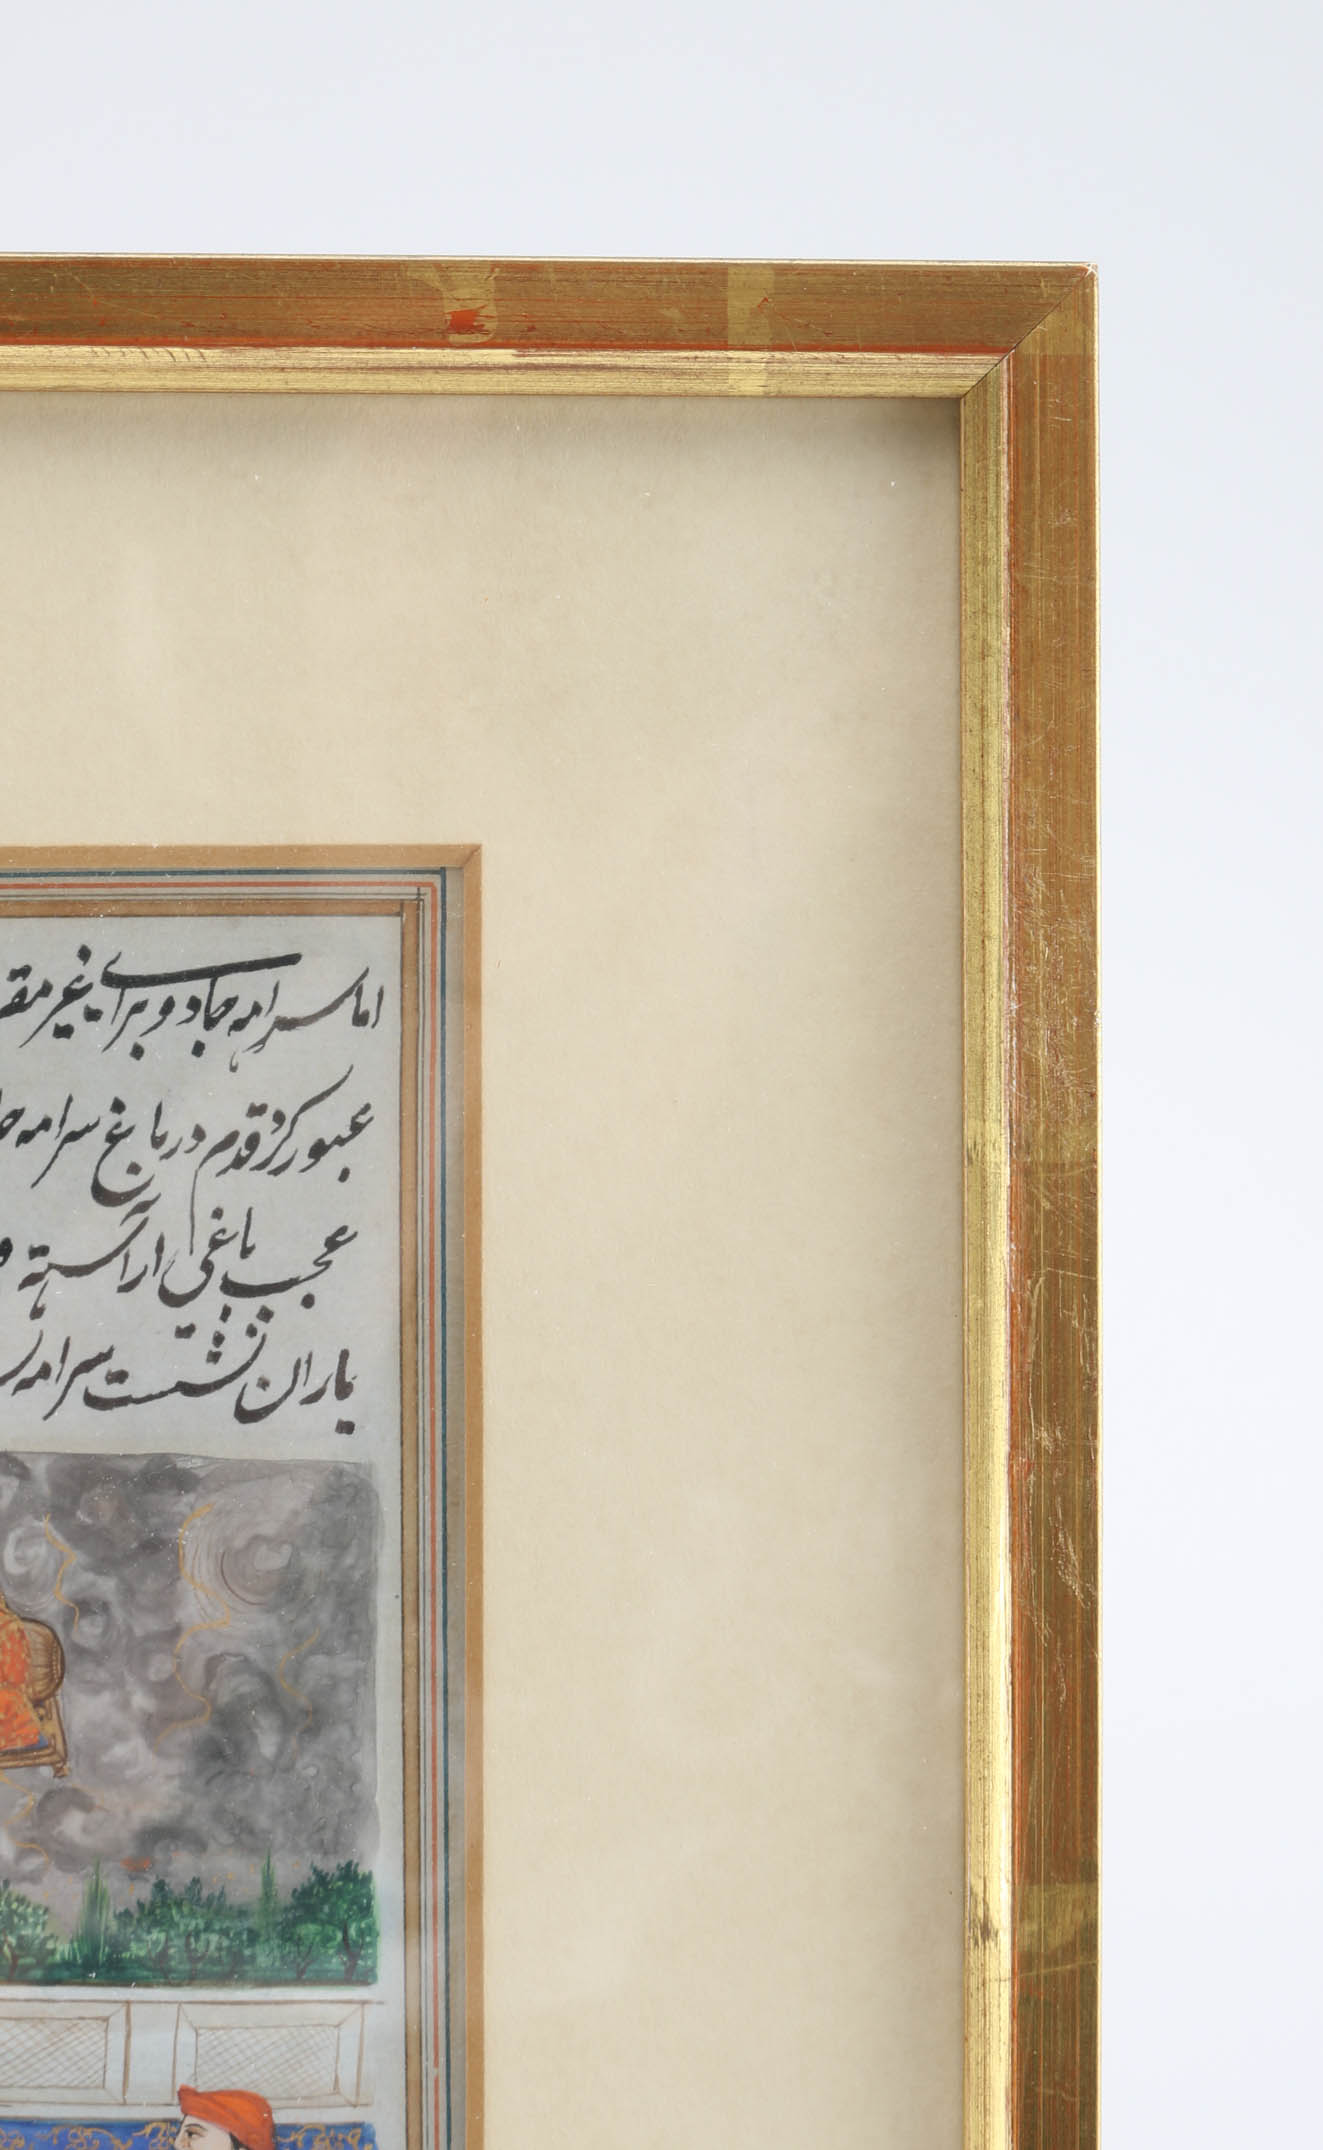 اما سرامه جادو برای غیر مقر
عبور کرد قدم در باغ سرامه جا
عجب باغی اراسته و
یاران نشست سرامه